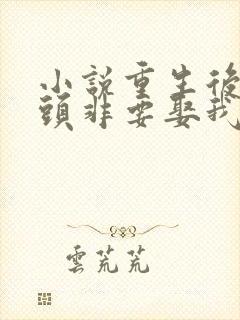 小說重生後
頭非要娶我
雲荒荒